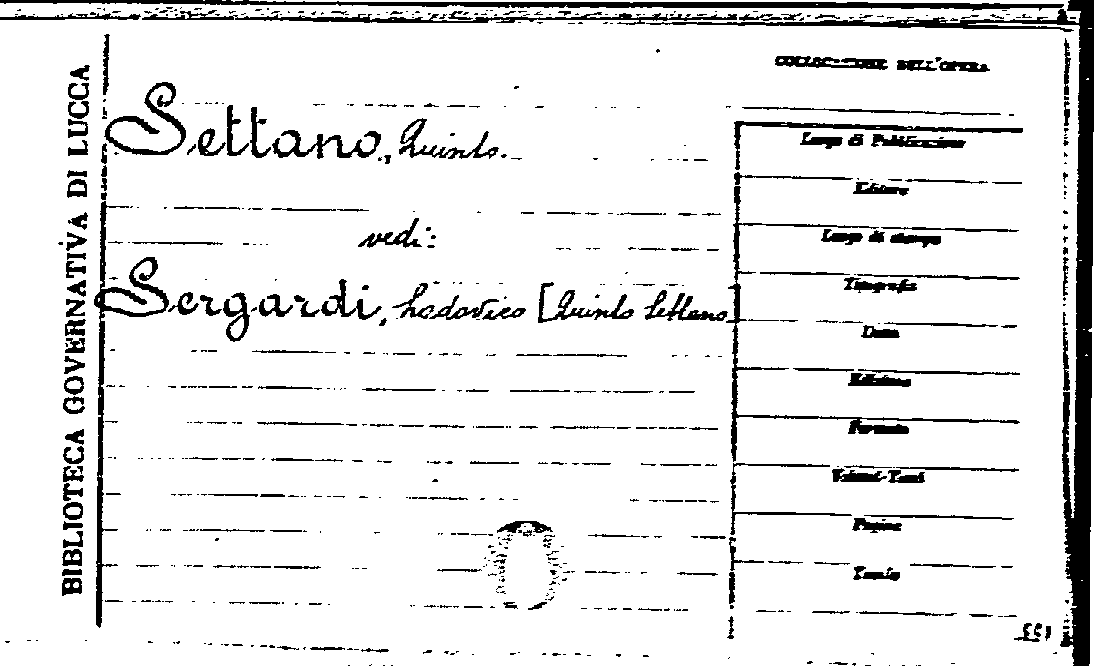 BIBLIOTECA GOVERNATIVA DI LUCCA
COLLOCAZIONE DELL'OPERA
Settano, Quinto.
vedi:
Sergardi, Lodovico [Quinto Settano]
Luogo di Pubblicazione
Editore
Luogo di stampa
Tipografia
Data
Edizione
Formato
Volumi-Tomi
Pagine